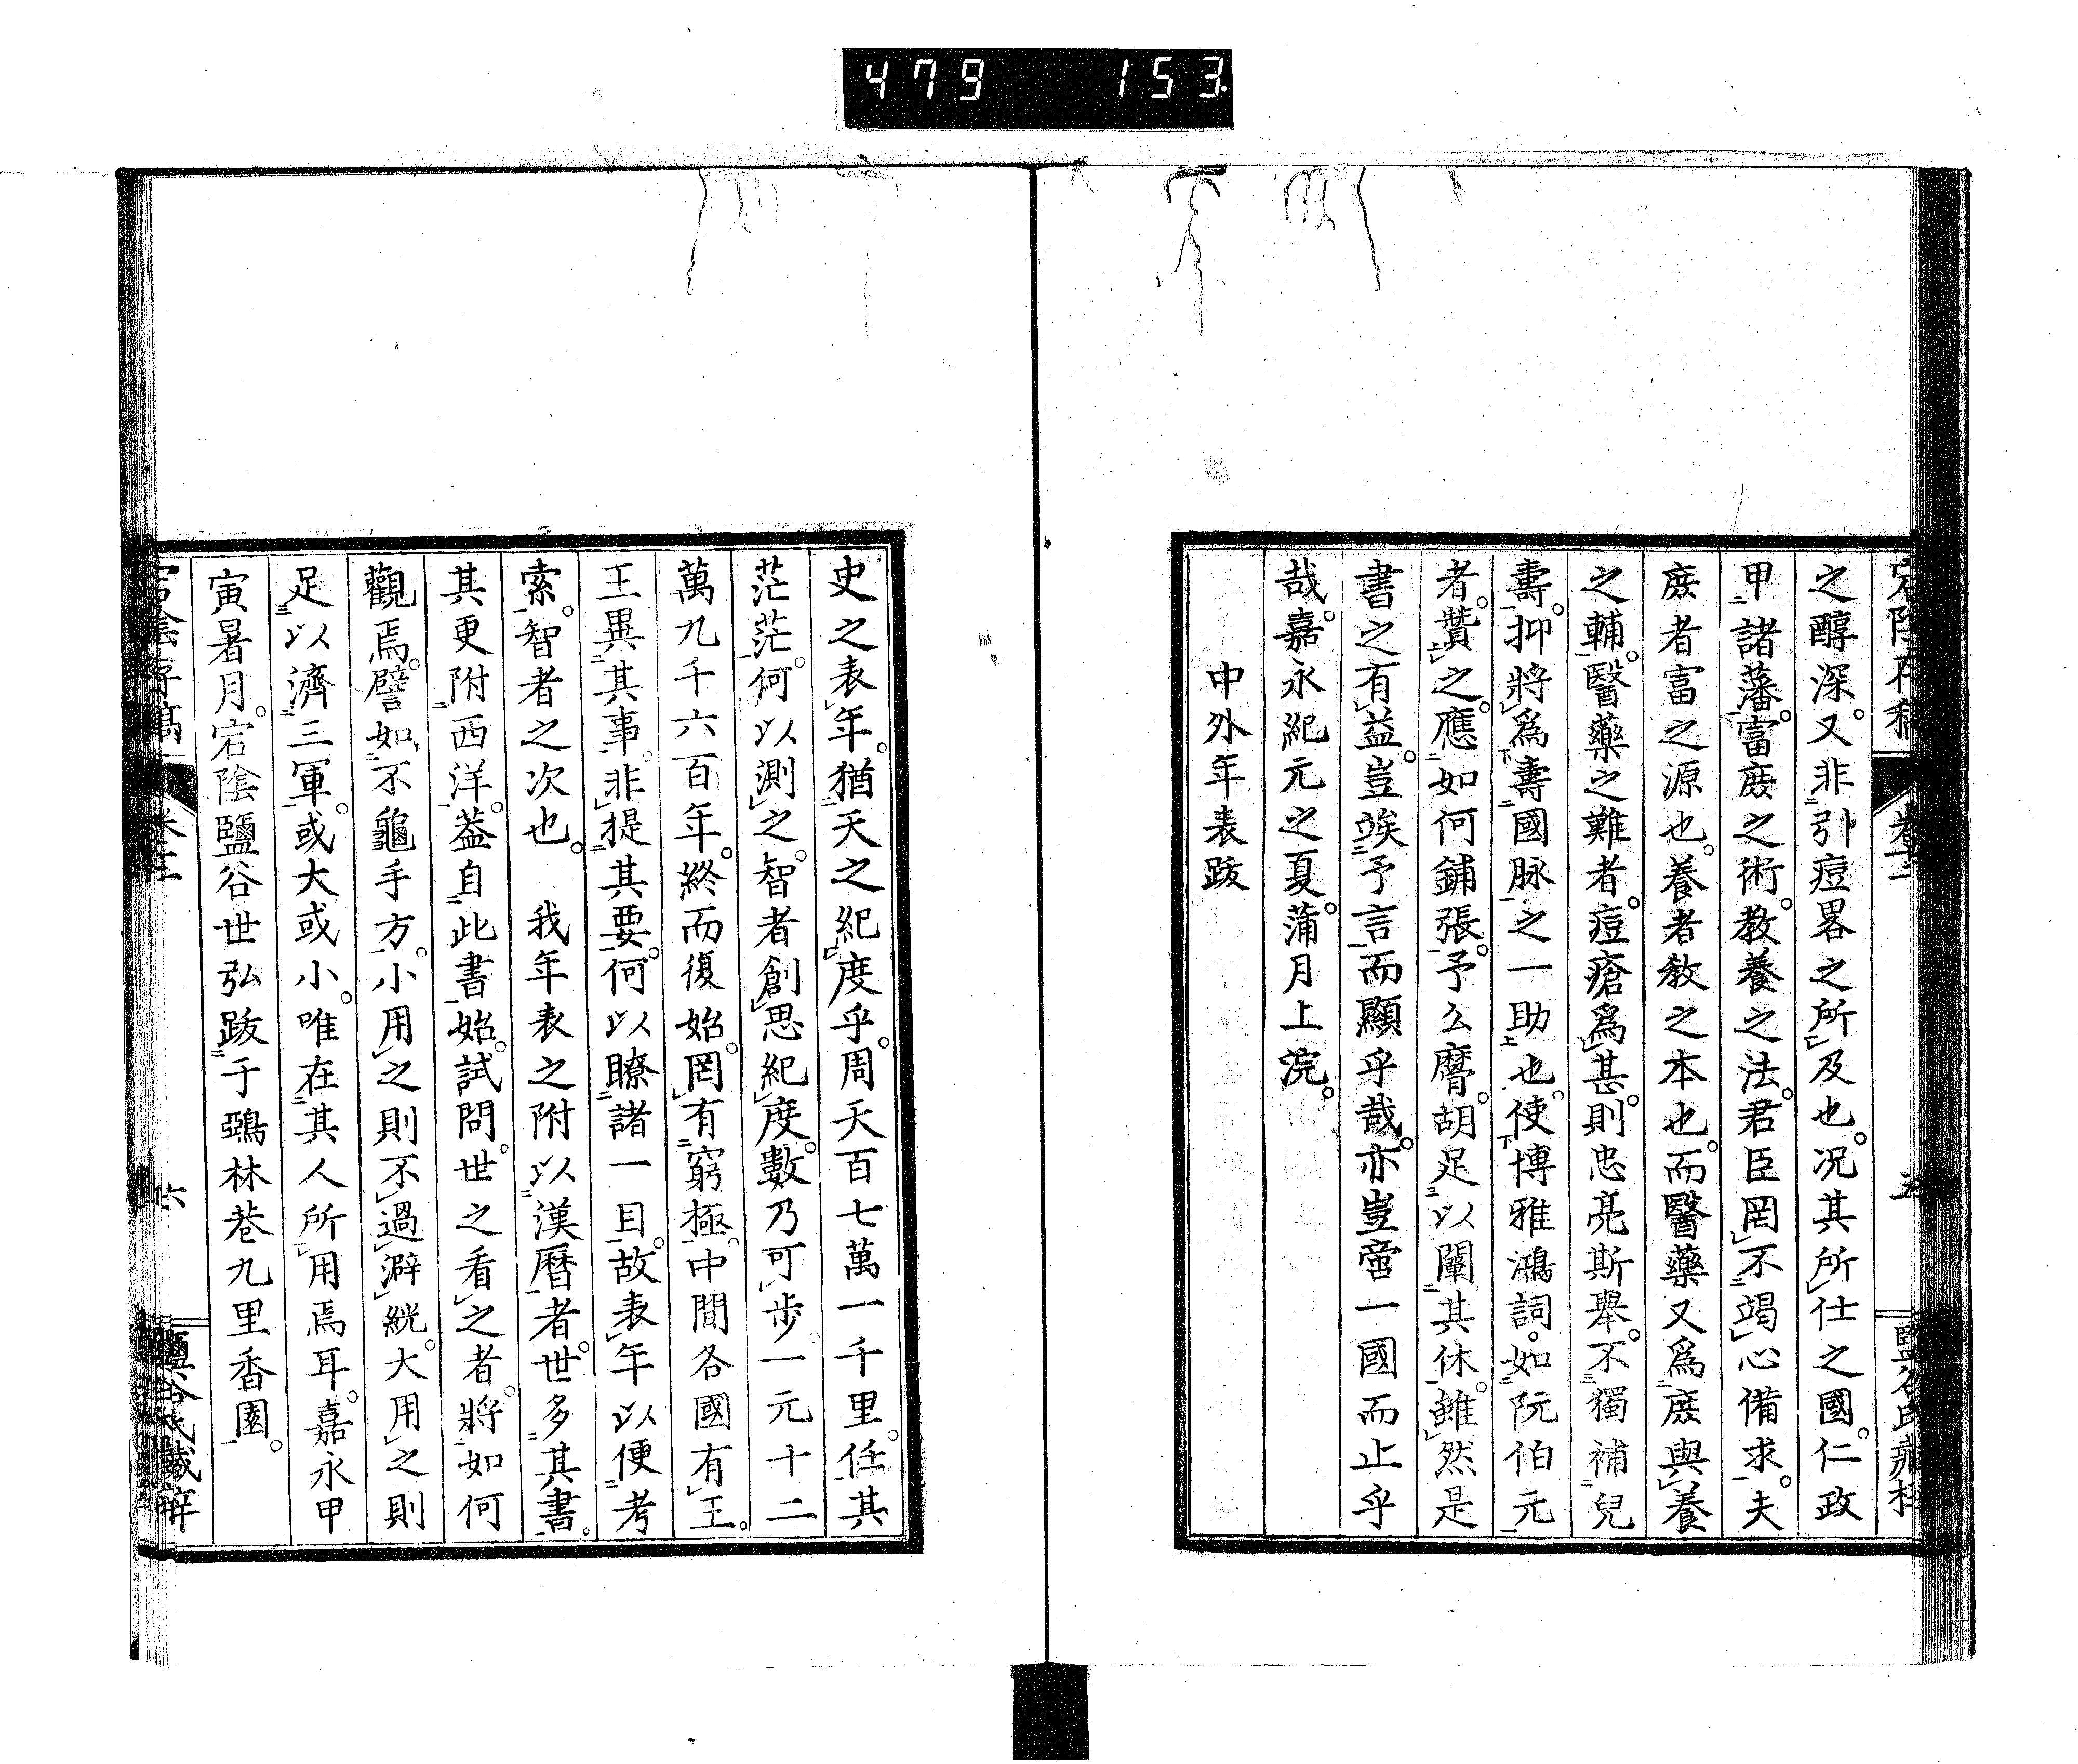 479 153
之醇深。又非引痘畧之所及也。况其所仕之國。仁政
甲諸藩。富庶之術。教養之法。君臣罔不竭心備求。夫
庶者富之源也。養者教之本也。而醫藥又爲庶與養
之輔。醫藥之難者。痘瘡爲甚。則忠亮斯舉。不獨補兒
壽。抑將爲壽國脉之一助也。使博雅鴻詞。如阮伯元
者。贊之。應如何鋪張。予么麿。胡足以闡其休。雖然是
書之有益。豈竢予言而顯乎哉。亦豈啻一國而止乎
哉。嘉永紀元之夏。蒲月上浣。
中外年表跋
史之表年。猶天之紀度乎。周天百七萬一千里。任其
茫茫。何以測之。智者創思紀度。數乃可步。一元十二
萬九千六百年。終而復始。罔有窮極。中間各國有王。
王異其事。非提其要。何以瞭諸一目。故表年以便考
索。智者之次也。 我年表之附以漢曆者。世多其書。
其更附西洋。葢自此書始。試問。世之看之者。將如何
觀焉。譬如不龜手方。小用之則不過澼絖。大用之則
足以濟三軍。或大或小。唯在其人所用焉耳。嘉永甲
寅暑月。宕陰鹽谷世弘跋于鵶林巷九里香園。